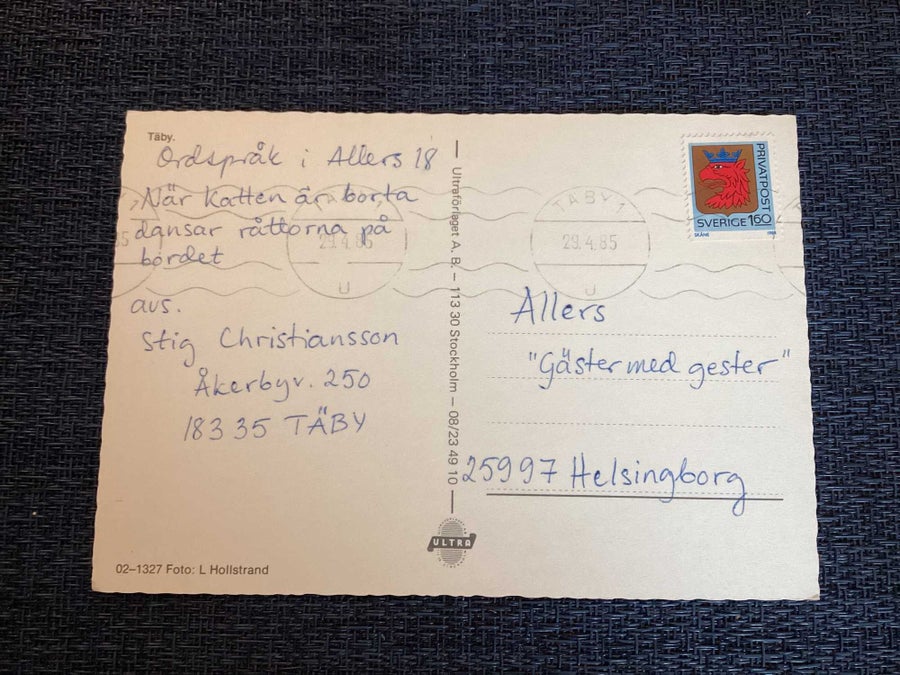 Täby.
Ordspråk i Allers 18
När Katten är borta
dansar råttorna på
bordet
avs.
Stig Christiansson
Åkerbyv. 250
183 35 TÄBY
02–1327 Foto: L Hollstrand
Ultraförlaget A. B. – 113 30 Stockholm – 08/23 49 10
ULTRA
TÄBY 1
29.4.85
U
29.4.85
U
PRIVATPOST
SVERIGE 160
SKÅNE
Allers
"Gäster med gester"
25997 Helsingborg